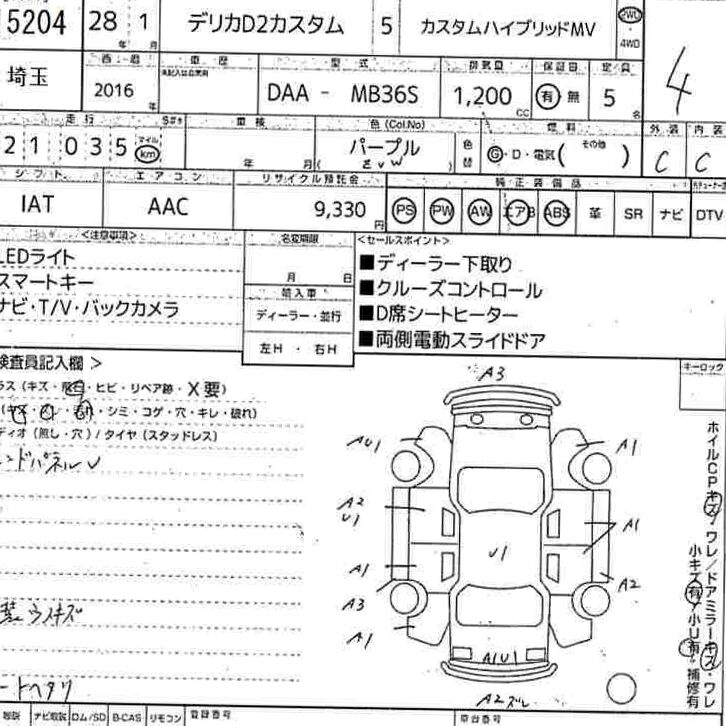 5204 28年 1月 デリカD2カスタム 5 カスタムハイブリッドMV 2WD 4WD
埼玉 西暦 車歴 型式 排気量 保証書 定員
2016年 DAA - MB36S 1,200cc 有 無 5名 4
走行 車検 色(Col.No) 燃料 外装 内装
21035 マイル km 年 月 パープル (ZVW) 色替 G・D・電気( その他 ) C C
シフト エアコン リサイクル預託金 純正装備品
IAT AAC 9,330円 PS PW AW エアB ABS 革 SR ナビ DTV
<注意事項> 名変期限 <セールスポイント>
LEDライト
スマートキー
ナビ・T/V・バックカメラ
月 日
輸入車
ディーラー・並行
左H・右H
■ディーラー下取り
■クルーズコントロール
■D席シートヒーター
■両側電動スライドドア
検査員記入欄 >
ヒビ・リペア跡・X要)
シミ・コゲ・穴・キレ・破れ)
ディオ(無し・穴)/タイヤ(スタッドレス)
キーロック
A3
AU1
A1
A2
U1
A1
U1
A1
A2
A3
A1
A1U1
A2ズレ
ホイルCPキズ・ワレ/ドアミラーキズ・ワレ
小キズ有/小U有・補修有
ナビ取説 ロム/SD B-CAS リモコン 登録番号 車台番号